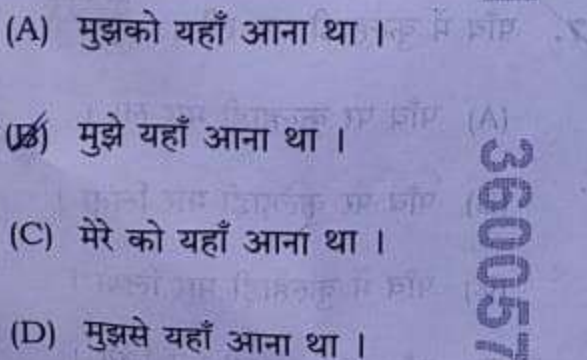 (A) मुझको यहाँ आना था ।
(B) मुझे यहाँ आना था ।
(C) मेरे को यहाँ आना था ।
(D) मुझसे यहाँ आना था ।
360057